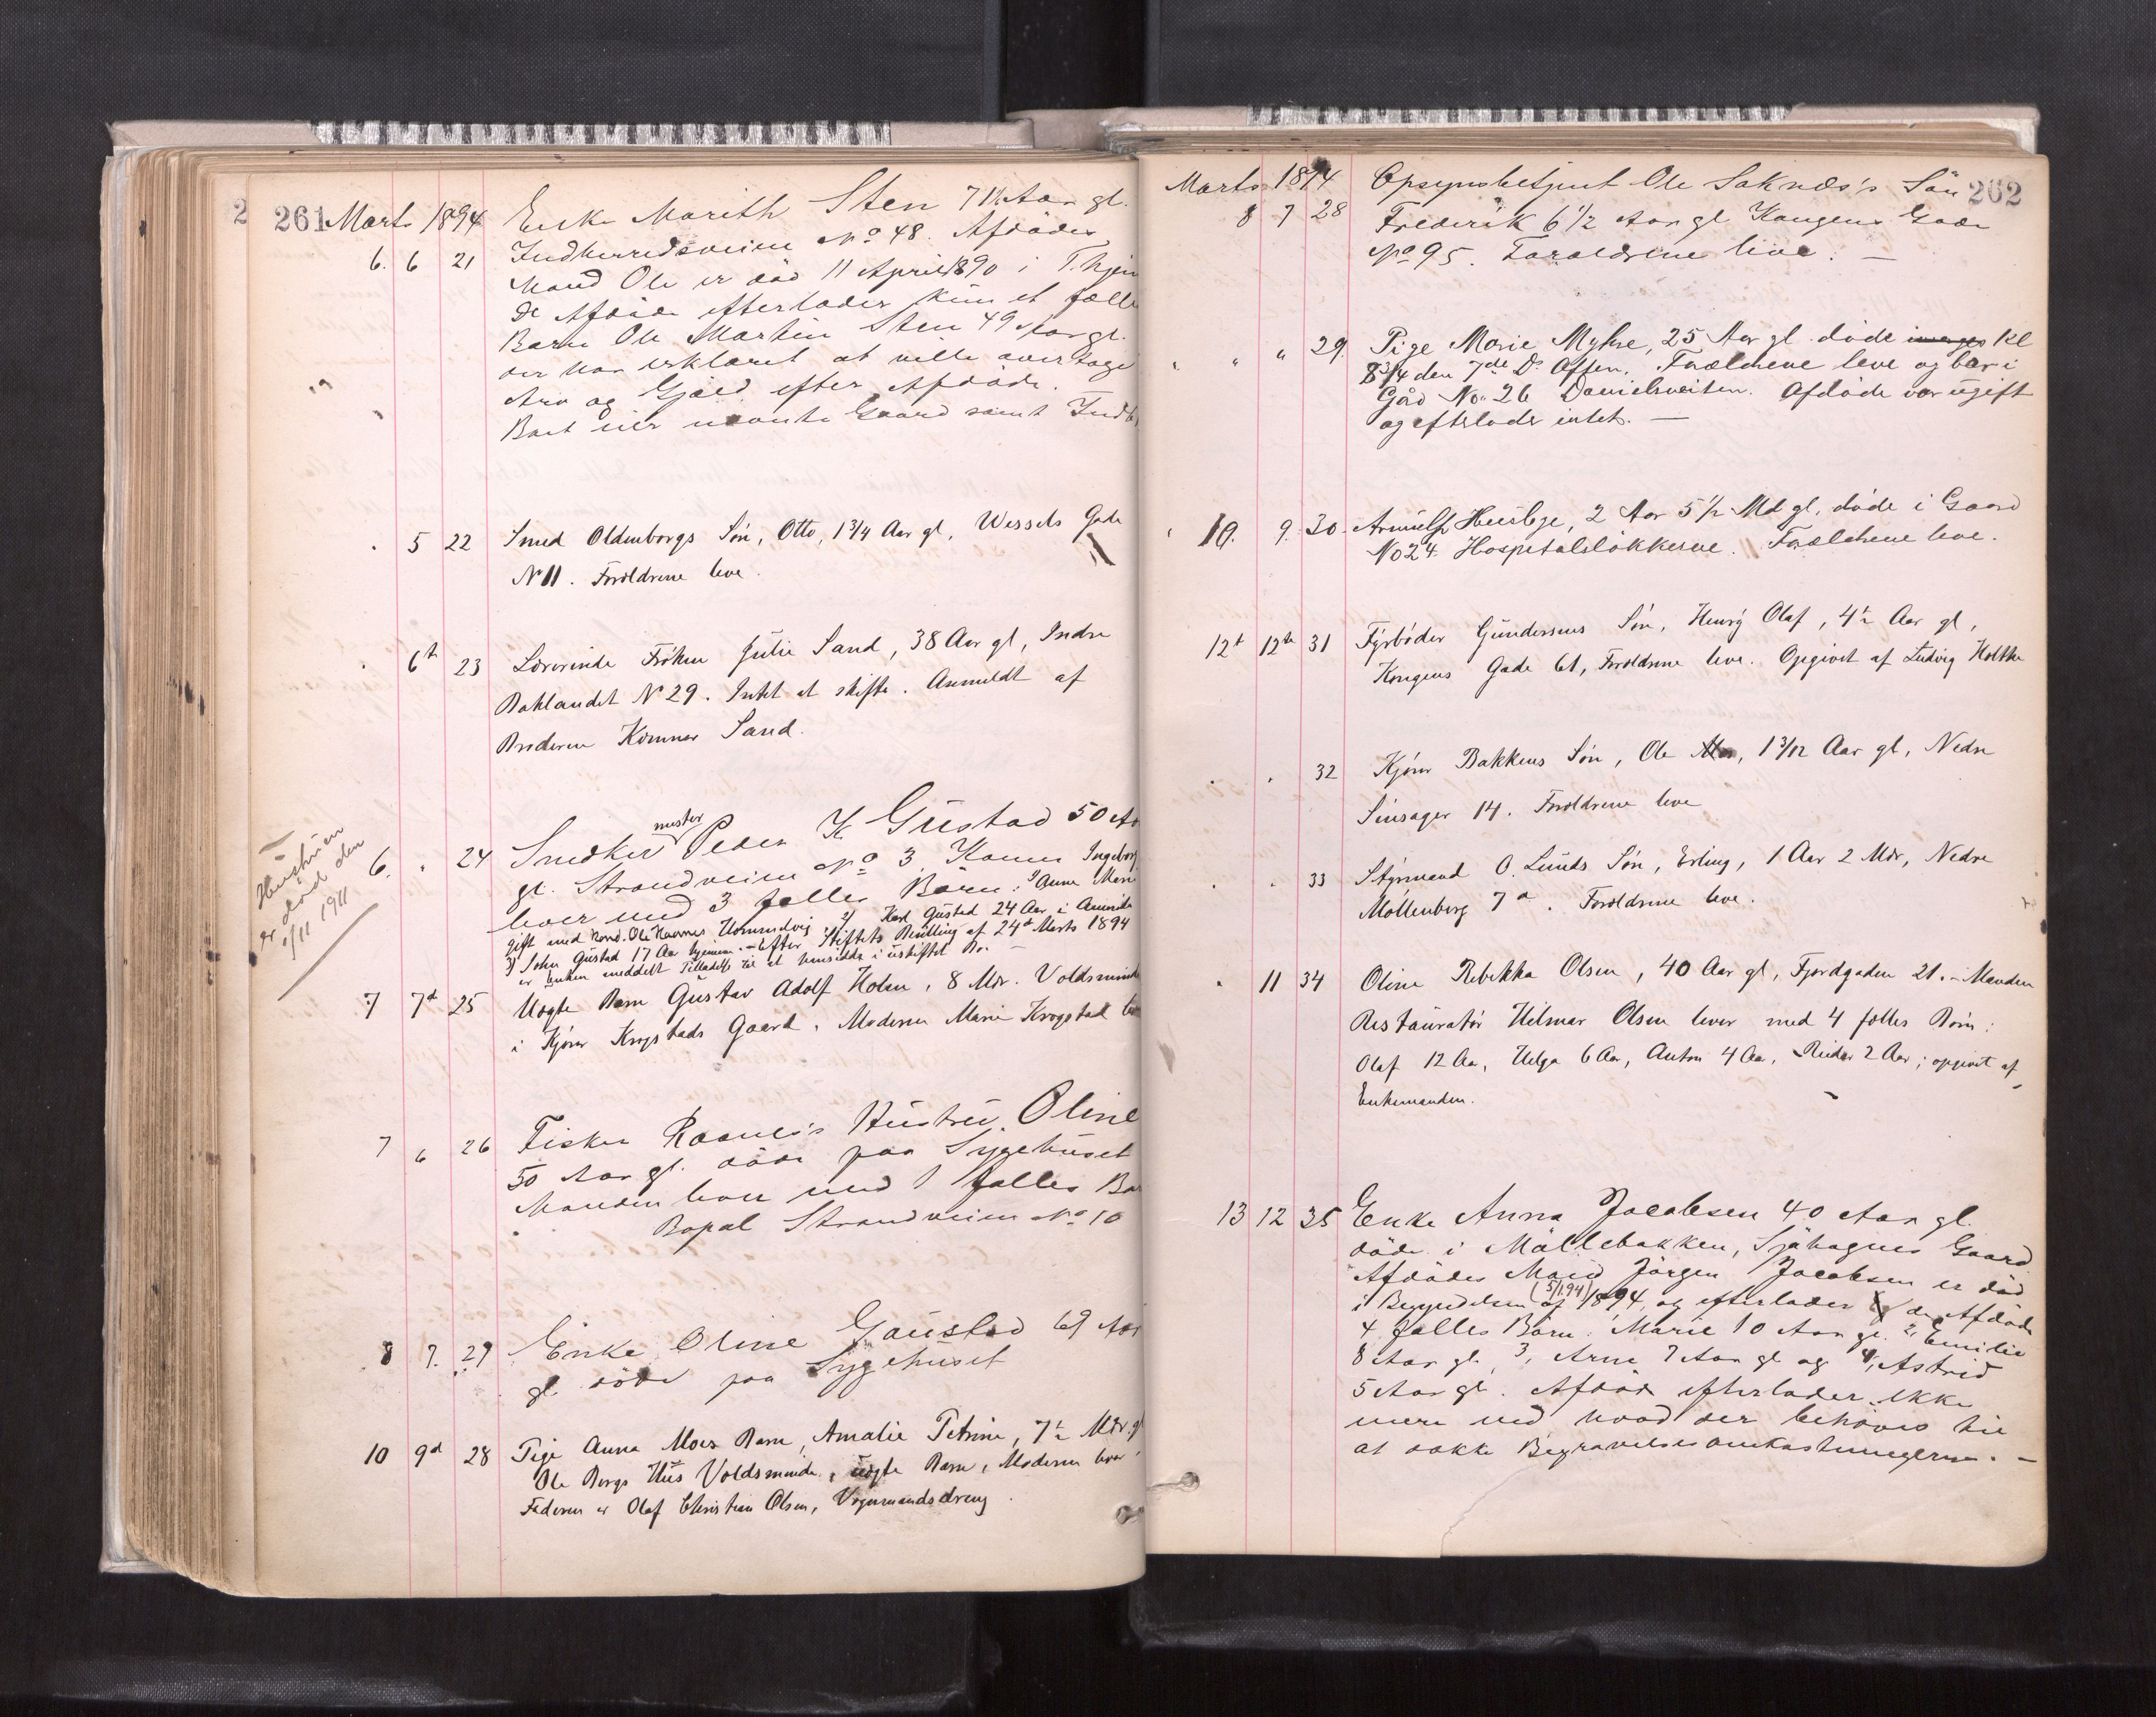 261 Marts 1894 Enke Marith Sten 71 Aar gl.
6. 6 21 Indherredsveien No 48. Afdødes
Mand Ole er død 11 April 1890 i T.hjem
De Afdøde efterlader kun et fælles
Barn Ole Martin Sten 49 Aar gl.
der har erklæret at ville overtage
Arv og Gjæld efter Afdøde.
Boet eier nævnte Gaard samt Indb
5 22 Smed Oldenborgs Søn, Otto, 1 3/4 Aar gl, Wessels Gade
N 11. Forældrene leve.
6t 23 Lærerinde Frøken Julie Sand, 38 Aar gl, Indre
Baklandet N 29. Intet at skifte. Anmeldt af
Broderen Kæmner Sand.
Hustruen
er død den
/11 1911
6. 24 Snedker mester Peder K Gustad 50 Aar
gl. Strandveien No 3. Konen Ingeborg
lever med 3 fælles Børn: 1) Anne Marie
gift med Kand. Ole Hommelvig 2) Karl Gustad 24 Aar i Amerika
3) John Gustad 17 Aar hjemme. - Efter Stiftets Bevilling af 24d Marts 1894
er Enken meddelt Tilladelse til at hensidde i uskiftet Bo.
7 7d 25 Uægte Barn Gustav Adolf Holm, 8 Mdr. Voldsminde
i Kjører Krogstads Gaard. Moderen Marie Krogstad lever
7 6 26 Fisker Raanes's Hustru Oline
50 Aar gl. døde paa Sygehuset
Manden lever med 1 fælles Barn
Bopæl Strandveien No 10
8 7. 27 Enke Oline Gaustad 69 Aar
gl døde paa Sygehuset
10 9d 28 Pige Anna Moes Barn, Amalie Petrine, 7 1/2 Mdr. gl
Ole Bergs Hus Voldsminde, uægte Barn, Moderen lever
Faderen er Olaf Christian Olsen, Vognmandsdreng.
Marts 1894 Opsynsbetjent Ole Saknæs's Søn 262
8 7 28 Frederik 6 1/2 Aar gl Kongens Gade
No 95. Forældrene leve. —
" " " 29. Pige Marie Myhre, 25 Aar gl. døde Kl
8 3/4 den 7de Ds Aften. Forældrene leve og bor i
Gård No. 26 Danielsveiten. Afdøde var ugift
og efterlader intet. —
10. 9. 30. Arnulf Husby, 2 Aar 5 1/2 Md gl, døde i Gaard
No 24 Hospitalsløkkerne. Forældrene leve.
12t 12te 31 Fyrbøder Gundersens Søn, Henry Olaf, 4 1/2 Aar gl,
Kongens Gade 61, Forældrene leve. Opgivet af Ludvig Holthe
32 Kjører Bakkens Søn, Ole, 1 3/12 Aar gl, Nedre
Sinsager 14. Forældrene leve
33 Styrmand O. Lunds Søn, Erling, 1 Aar 2 Mdr, Nedre
Møllenberg 7a. Forældrene leve.
11 34 Oline Rebekka Olsen, 40 Aar gl, Fjordgaden 21. - Manden
Restauratør Hilmar Olsen lever med 4 fælles Børn:
Olaf 12 Aar, Helga 6 Aar, Anton 4 Aar, Reidar 2 Aar; opgivet af
Enkemanden.
13 12 35 Enke Anna Jacobsen 40 Aar gl.
døde i Møllebakken, Sjøhagnes Gaard
Afdødes Mand Jørgen Jacobsen er død
i Begyndelsen af (5/1 94) 1894, og efterlader de Afdøde
4 fælles Børn: Marie 10 Aar gl. 2, Emilie
8 Aar gl. 3, Arne 7 Aar gl og 4, Astrid
5 Aar gl. Afdøde efterlader ikke
mere end hvad der behøves til
at dække Begravelsesomkostningerne. —